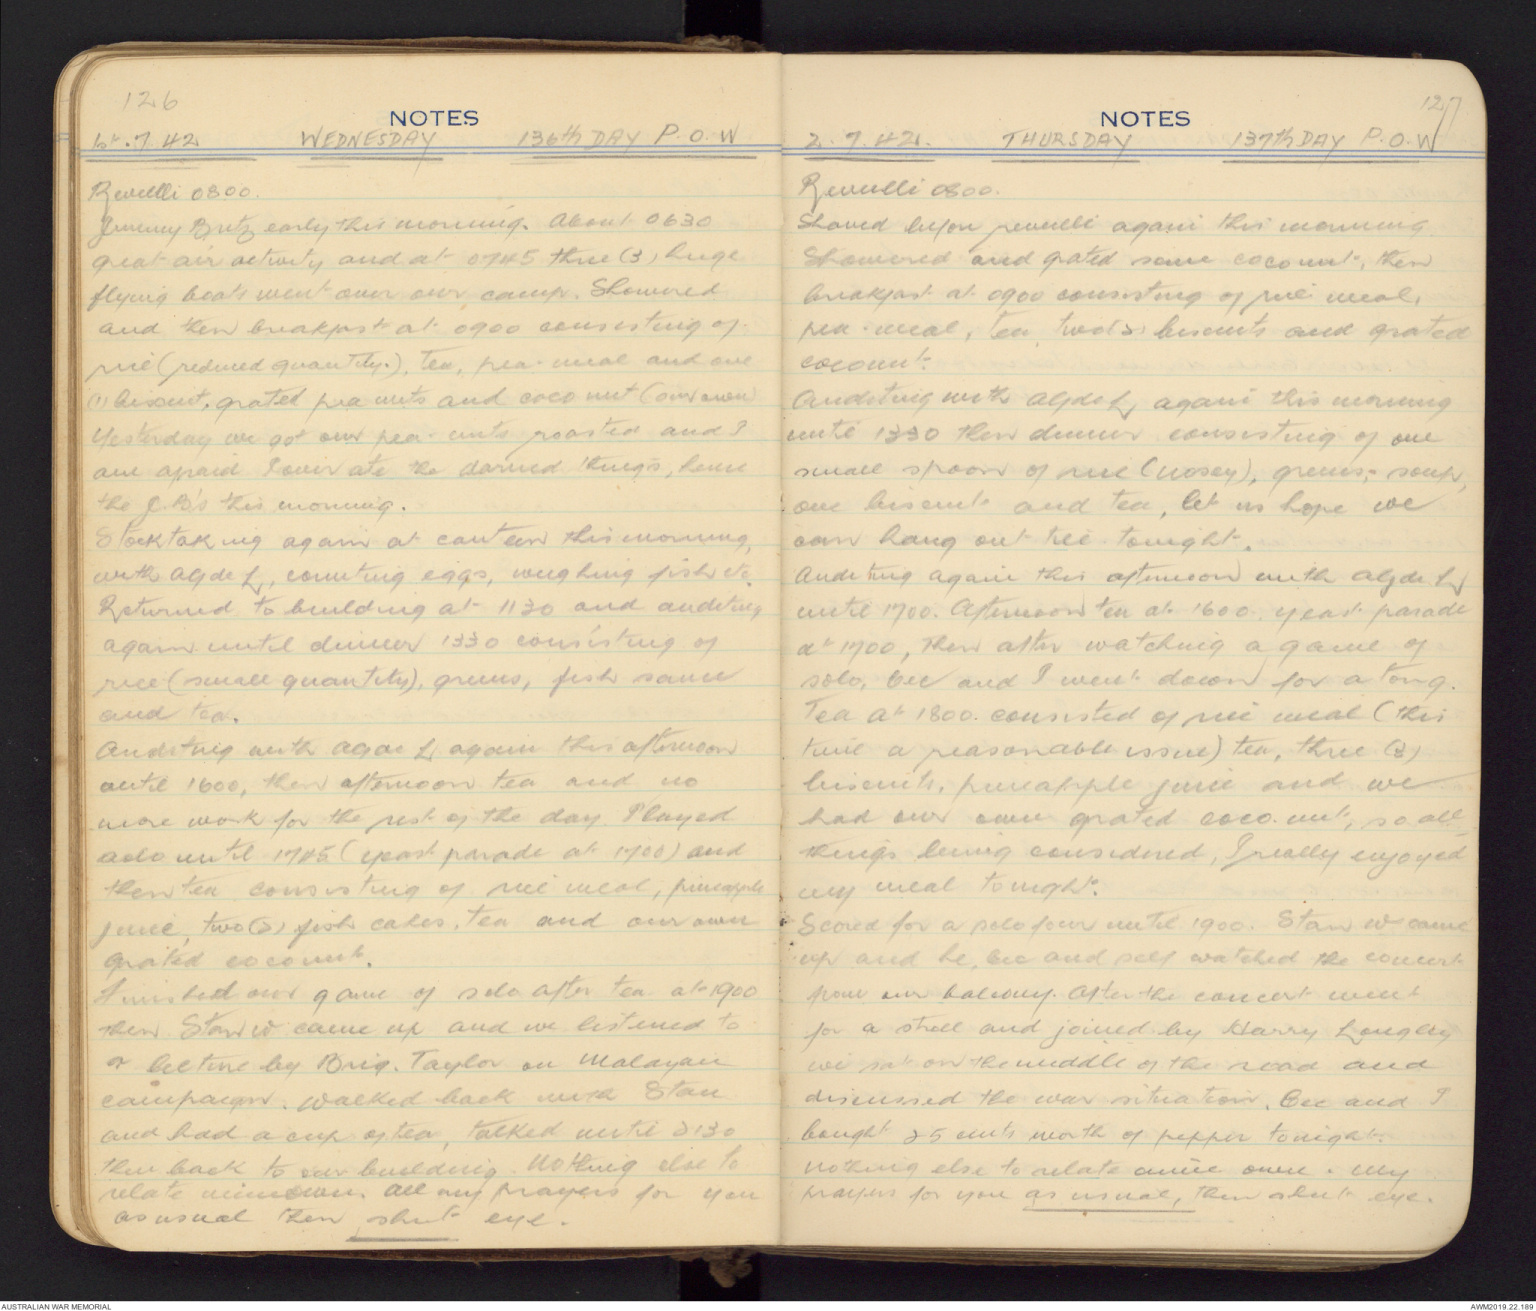 126
NOTES
1st.7.42 WEDNESDAY 136th DAY P.O.W
Revelli 0800.
Jimmy Britz early this morning. About 0630
great air activity and at 0745 three (3) huge
flying boats went over our camp. Showered
and then breakfast at 0900 consisting of
rice (reduced quantity.), tea, pea-meal and one
(1) biscuit, grated pea nuts and coconut (our own)
Yesterday we got our pea-nuts roasted and I
am afraid I over ate the darned things, hence
the J.B's this morning.
Stocktaking again at canteen this morning,
with Clyde L, counting eggs, weighing fish etc.
Returned to building at 1130 and auditing
again until dinner 1330 consisting of
rice (small quantity), greens, fish sauce
and tea.
Auditing with Clyde L again this afternoon
until 1600, then afternoon tea and no
more work for the rest of the day. Played
solo until 1745 (yeast parade at 1700) and
then tea consisting of rice meal, pineapple
juice, two (2) fish cakes, tea and our own
grated coconut.
Finished our game of solo after tea at 1900
then Stan W came up and we listened to
a lecture by Brig. Taylor on Malayan
campaign. Walked back with Stan
and had a cup of tea, talked until 2130
then back to our building. Nothing else to
relate mine own. All my prayers for you
as usual then shut eye.
127
NOTES
2.7.42. THURSDAY 137th DAY P.O.W
Revelli 0800.
Shaved before revelli again this morning
Showered and grated some coconut, then
breakfast at 0900 consisting of rice meal,
pea-meal, tea, two (2) biscuits and grated
coconut.
Auditing with Clyde L, again this morning
until 1330 then dinner consisting of one
small spoon of rice (nosey), greens, soup,
one biscuit and tea, let us hope we
can hang out till tonight.
Auditing again this afternoon with Clyde L
until 1700. Afternoon tea at 1600. yeast parade
at 1700, then after watching a game of
solo, Cec and I went down for a tong.
Tea at 1800. consisted of rice meal (this
time a reasonable issue) tea, three (3)
biscuits, pineapple juice and we
had our own grated coco-nut, so all
things being considered, I really enjoyed
my meal tonight.
Scored for a solo four until 1900. Stan W came
up and he, Cec and self watched the concert
from our balcony. After the concert went
for a stroll and joined by Harry Longley
we sat on the middle of the road and
discussed the war situation. Cec and I
bought 25 cents worth of pepper tonight.
Nothing else to relate mine own. My
prayers for you as usual, then shut eye.
AUSTRALIAN WAR MEMORIAL
AWM2019.22.189